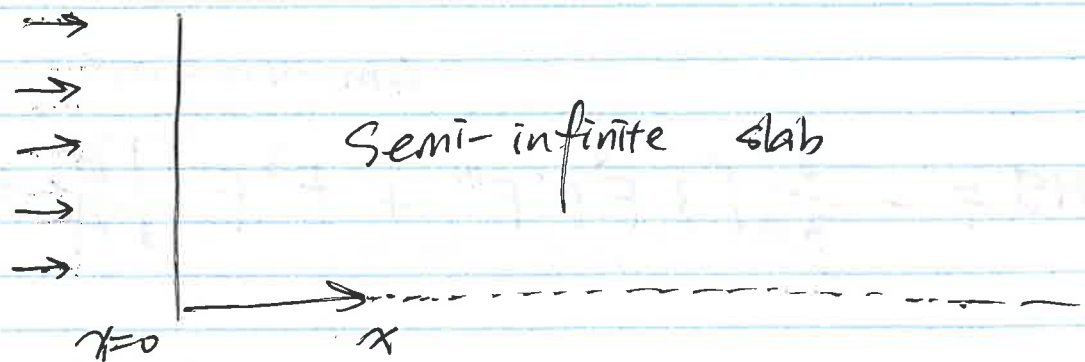 Semi-infinite slab
x=0 x